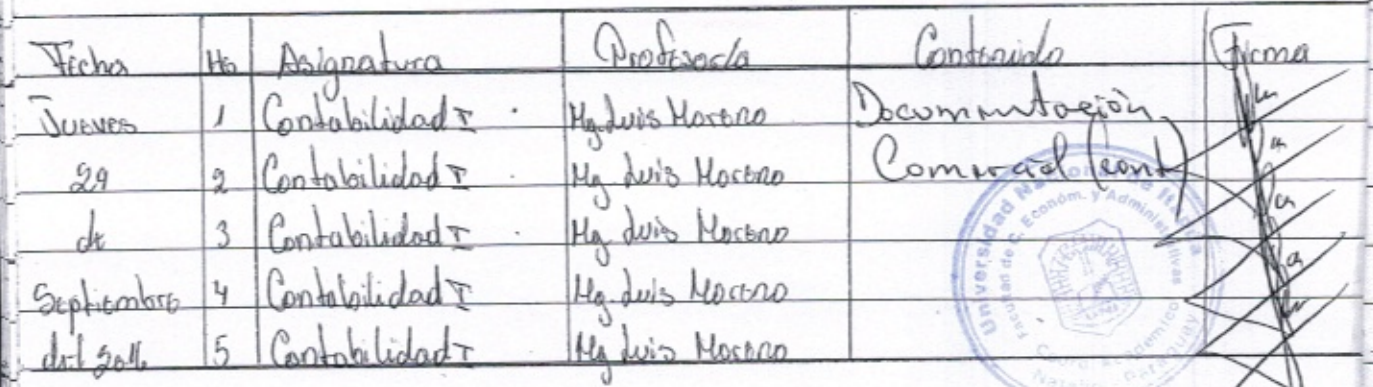 Fecha Ho Asignatura Profesor/a Contenido Firma
Jueves 1 Contabilidad I Mg. Luis Moreno Documentación
29 2 Contabilidad I Mg. Luis Moreno Comercial (cont)
de 3 Contabilidad I Mg. Luis Moreno
Septiembre 4 Contabilidad I Mg. Luis Moreno
del 2016 5 Contabilidad I Mg. Luis Moreno
Universidad Nacional de Itapúa
Facultad de C. Económ. y Administrativas
UNI
Control Académico
Natalio - Paraguay